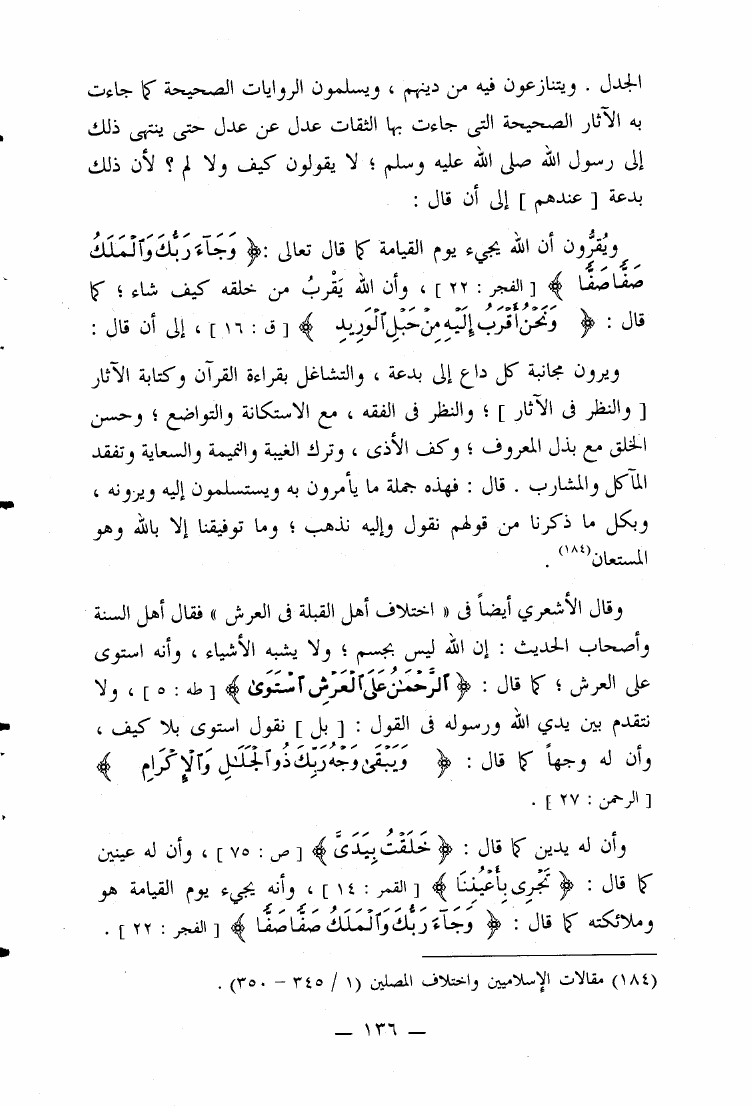 الجدل . ويتنازعون فيه من دينهم ، ويسلمون الروايات الصحيحة كما جاءت
به الآثار الصحيحة التى جاءت بها الثقات عدل عن عدل حتى ينتهى ذلك
إلى رسول الله صلى الله عليه وسلم ؛ لا يقولون كيف ولا لم ؟ لأن ذلك
بدعة [ عندهم ] إلى أن قال :
ويُقرُّون أن الله يجيء يوم القيامة كما قال تعالى : ﴿ وَجَآءَ رَبُّكَ وَٱلْمَلَكُ
صَفًّا صَفًّا ﴾ [ الفجر : ٢٢ ] ، وأن الله يَقْربُ من خلقه كيف شاء ؛ كما
قال : ﴿ وَنَحْنُ أَقْرَبُ إِلَيْهِ مِنْ حَبْلِ ٱلْوَرِيدِ ﴾ [ ق : ١٦ ] ، إلى أن قال :
ويرون مجانبة كل داع إلى بدعة ، والتشاغل بقراءة القرآن وكتابة الآثار
[ والنظر فى الآثار ] ؛ والنظر فى الفقه ، مع الاستكانة والتواضع ؛ وحسن
الخلق مع بذل المعروف ؛ وكف الأذى ، وترك الغيبة والنميمة والسعاية وتفقد
المآكل والمشارب . قال : فهذه جملة ما يأمرون به ويستسلمون إليه ويرونه ،
وبكل ما ذكرنا من قولهم نقول وإليه نذهب ؛ وما توفيقنا إلا بالله وهو
المستعان(١٨٤) .
وقال الأشعري أيضاً فى « اختلاف أهل القبلة فى العرش » فقال أهل السنة
وأصحاب الحديث : إن الله ليس بجسم ؛ ولا يشبه الأشياء ، وأنه استوى
على العرش ؛ كما قال : ﴿ ٱلرَّحْمَٰنُ عَلَى ٱلْعَرْشِ ٱسْتَوَىٰ ﴾ [ طه : ٥ ] ، ولا
نتقدم بين يدي الله ورسوله فى القول : [ بل ] نقول استوى بلا كيف ،
وأن له وجهاً كما قال : ﴿ وَيَبْقَىٰ وَجْهُ رَبِّكَ ذُو ٱلْجَلَٰلِ وَٱلْإِكْرَامِ ﴾
[ الرحمن : ٢٧ ] .
وأن له يدين كما قال : ﴿ خَلَقْتُ بِيَدَىَّ ﴾ [ ص : ٧٥ ] ، وأن له عينين
كما قال : ﴿ تَجْرِى بِأَعْيُنِنَا ﴾ [ القمر : ١٤ ] ، وأنه يجيء يوم القيامة هو
وملائكته كما قال : ﴿ وَجَآءَ رَبُّكَ وَٱلْمَلَكُ صَفًّا صَفًّا ﴾ [ الفجر : ٢٢ ] .
(١٨٤) مقالات الإسلاميين واختلاف المصلين (١ / ٣٤٥ – ٣٥٠) .
— ١٣٦ —